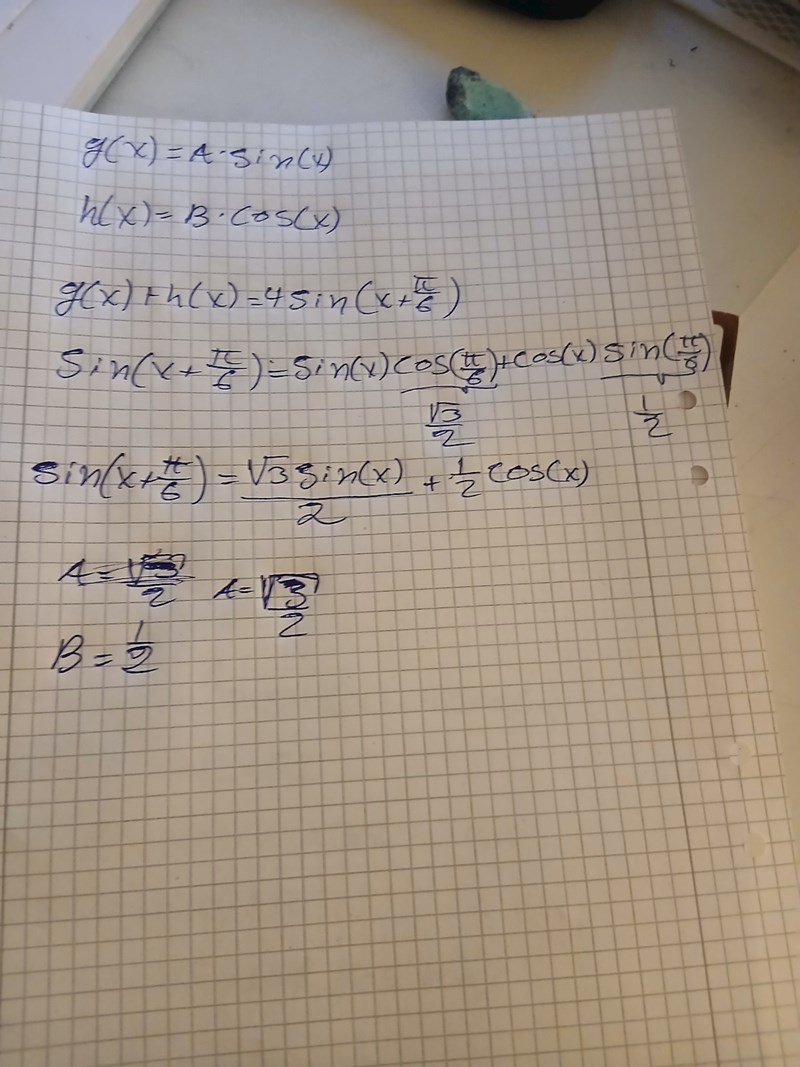 g(x) = A · sin(x)
h(x) = B · cos(x)
g(x) + h(x) = 4 sin(x + π/6)
sin(x + π/6) = sin(x) cos(π/6) + cos(x) sin(π/6)
√3/2 1/2
sin(x + π/6) = √3 sin(x)/2 + 1/2 cos(x)
A = √3/2 A = √3/2
B = 1/2